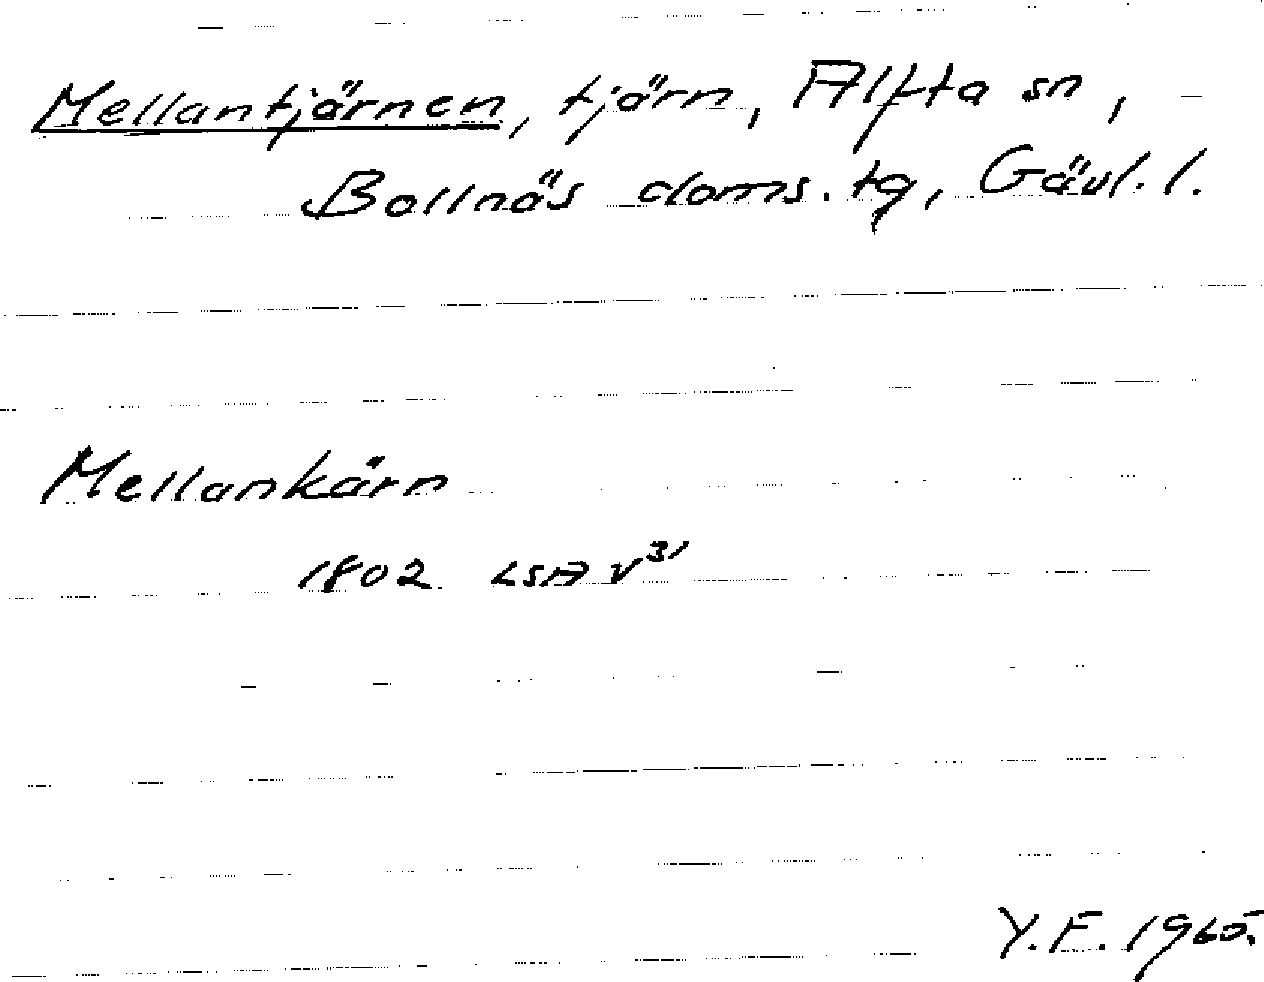 Mellantjärnen, tjärn, Alfta sn,
Bollnäs doms. tg, Gävl. l.
Mellankärn
1802 LSA V 31
Y.F. 1965.